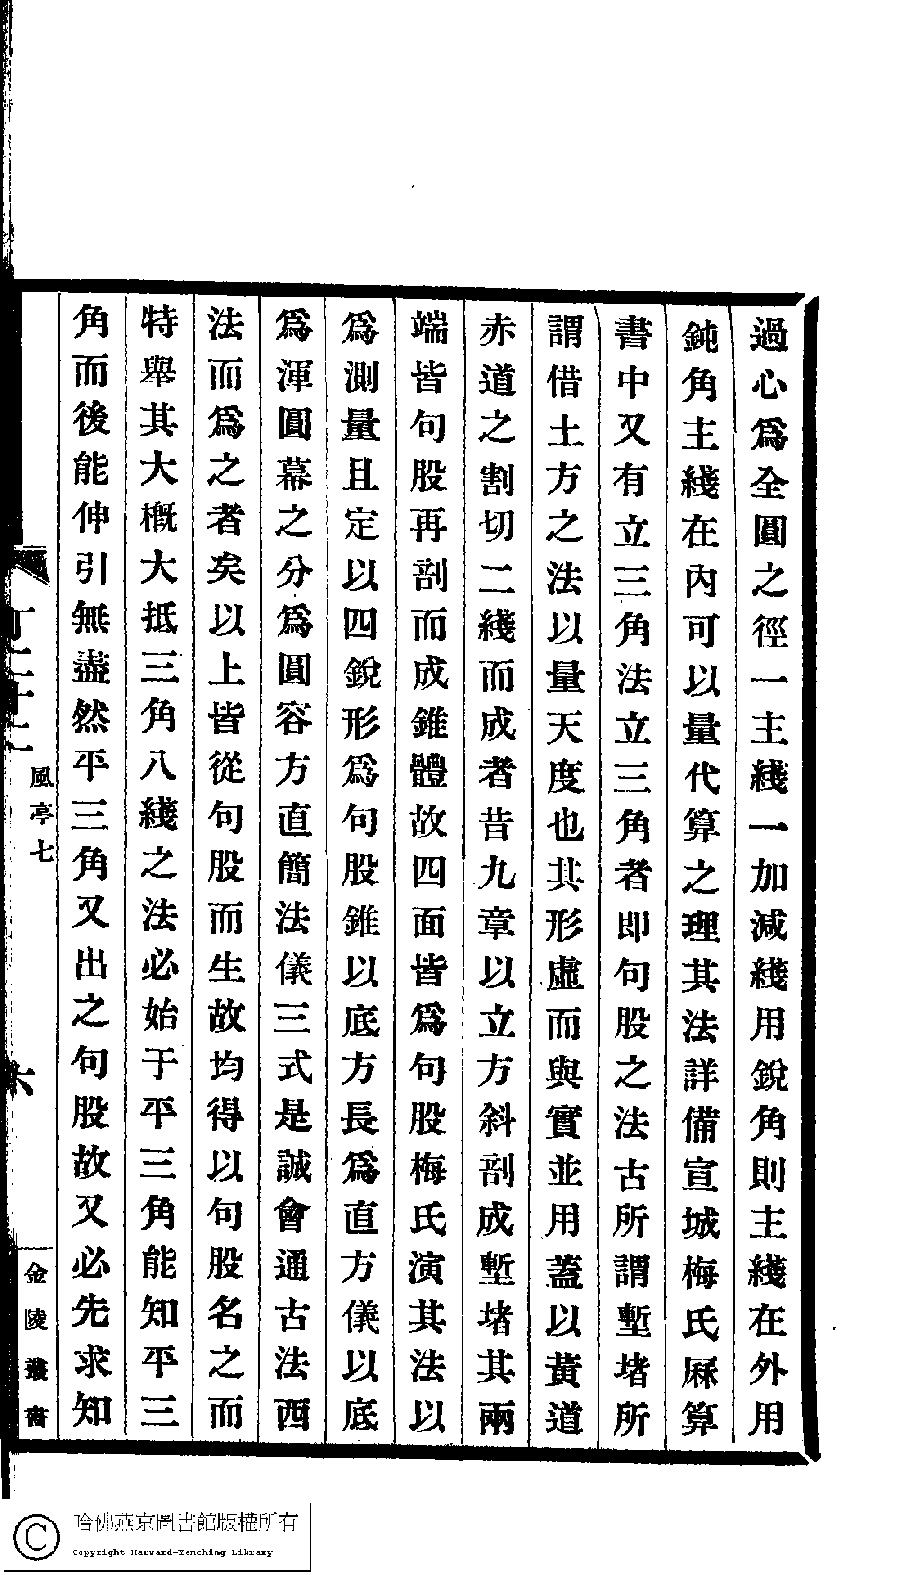 過心爲全圓之徑一主綫一加減綫用銳角則主綫在外用
鈍角主綫在內可以量代算之理其法詳備宣城梅氏厤算
書中又有立三角法立三角者即句股之法古所謂塹堵所
謂借土方之法以量天度也其形虛而與實並用蓋以黃道
赤道之割切二綫而成者昔九章以立方斜剖成塹堵其兩
端皆句股再剖而成錐體故四面皆爲句股梅氏演其法以
爲測量且定以四銳形爲句股錐以底方長爲直方儀以底
爲渾圓冪之分爲圓容方直簡法儀三式是誠會通古法西
法而爲之者矣以上皆從句股而生故均得以句股名之而
特舉其大概大抵三角八綫之法必始于平三角能知平三
角而後能伸引無盡然平三角又出之句股故又必先求知
風亭七
六
金陵叢書
哈佛燕京圖書館版權所有
Copyright Harvard-Yenching Library